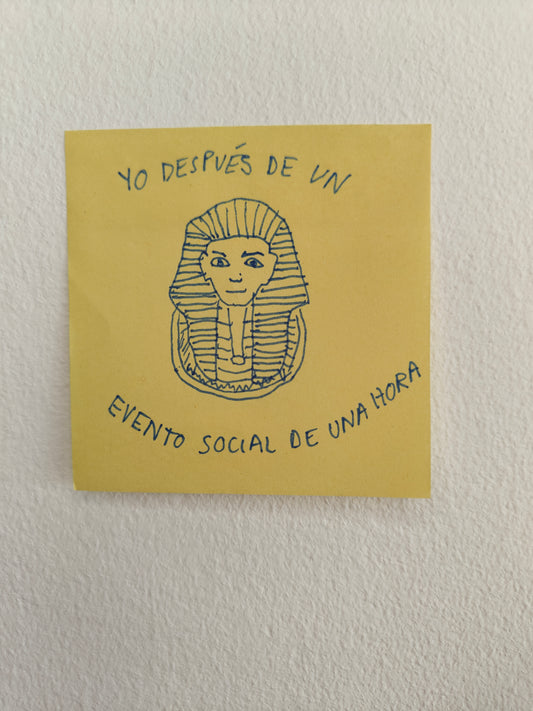 YO DESPUÉS DE UN
EVENTO SOCIAL DE UNA HORA